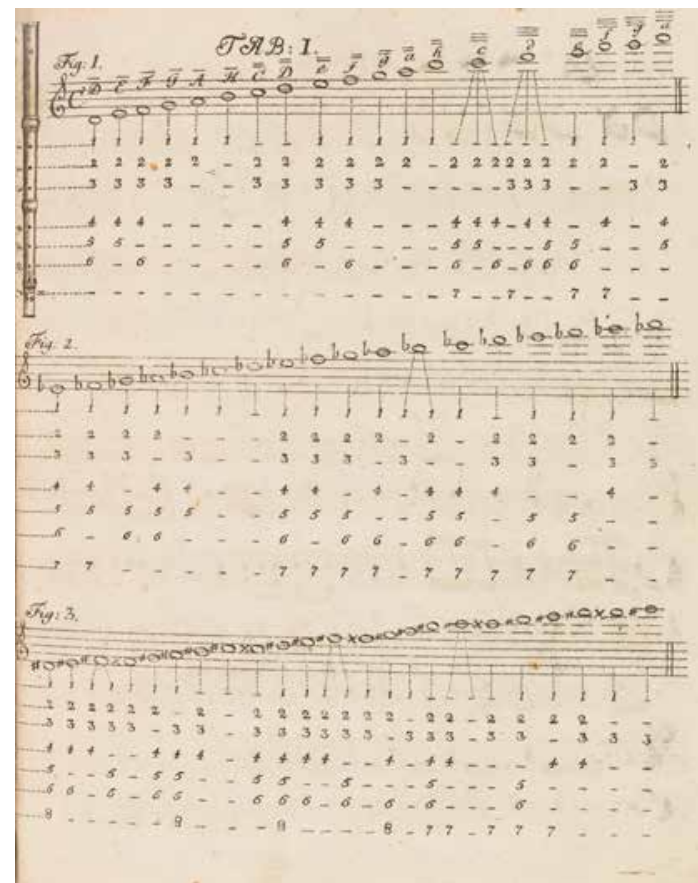 TAB: I.
Fig. 1.
D E F G A H C D e f g a h c d e f g a
1 1 1 1 1 1 - 1 1 1 1 1 1
2 2 2 2 2 - 2 2 2 2 2 2 - 2 2 2 2 2 2 2 2 - 2
3 3 3 3 - - 3 3 3 3 3 - - - - - 3 3 3 - - 3 3
4 4 4 - - - - 4 4 4 - - - 4 4 4 - 4 4 - 4 - 4
5 5 - - - - - 5 5 - - - - 5 5 - - - 5 5 - - 5
6 - 6 - - - - 6 - 6 - - - 6 - 6 - 6 6 6 - - -
- - - - - - - - - - - - - 7 - - 7 - - 7 7 - -
Fig. 2.
1 1 1 1 1 1 - 1 1 1 1
2 2 2 2 - - - 2 2 2 2 - 2 - 2 2 2 2 -
3 3 3 - 3 - - 3 3 3 - 3 - - 3 3 - 3 3
4 4 - 4 4 - - 4 4 - 4 - 4 4 4 - - 4 -
5 5 5 5 5 - - 5 5 5 - - 5 5 - 5 5 - -
6 - 6 6 - - - 6 - 6 6 - 6 6 - 6 6 - -
7 7 - - - - - 7 7 7 7 - 7 7 7 7 7 - -
Fig: 3.
1 1 1 1 1 1 1
2 2 2 2 2 2 - 2 - 2 2 2 2 2 2 2 - 2 2 - 2 2 2 2 - -
3 3 3 3 3 - 3 3 - 3 3 3 3 3 3 - 3 3 3 - 3 3 - 3 3 3
4 4 4 - - 4 4 4 - 4 4 4 4 - - 4 - 4 4 - - - 4 4 - -
5 - - 5 - 5 5 - - 5 5 - - 5 - - - 5 - - - 5 - - - -
6 6 - 6 - 6 6 - - 6 6 6 - 6 - 6 - 6 - - - 6 - - - -
8 - - - - - 8 - - - 8 - - - - 8 - 7 7 - 7 7 7 - - -